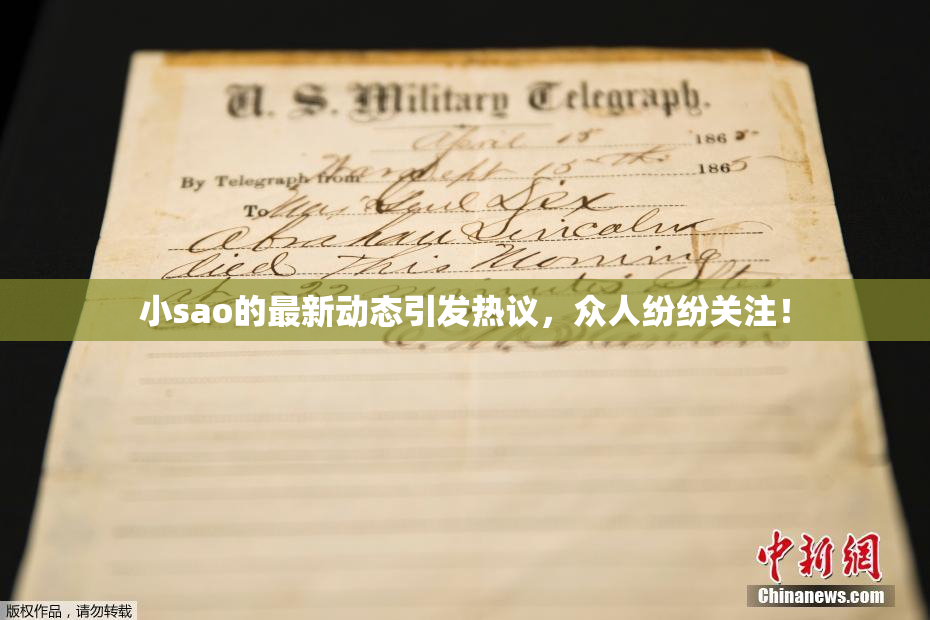 U. S. Military Telegraph.
April 15 1865
By Telegraph from War Dept 15 1865
To Maj Genl Dix
Abraham Lincoln
died This Morning
at 22 minutes after
小sao的最新动态引发热议，众人纷纷关注！
E. M. Stanton
中新网
Chinanews.com
版权作品，请勿转载